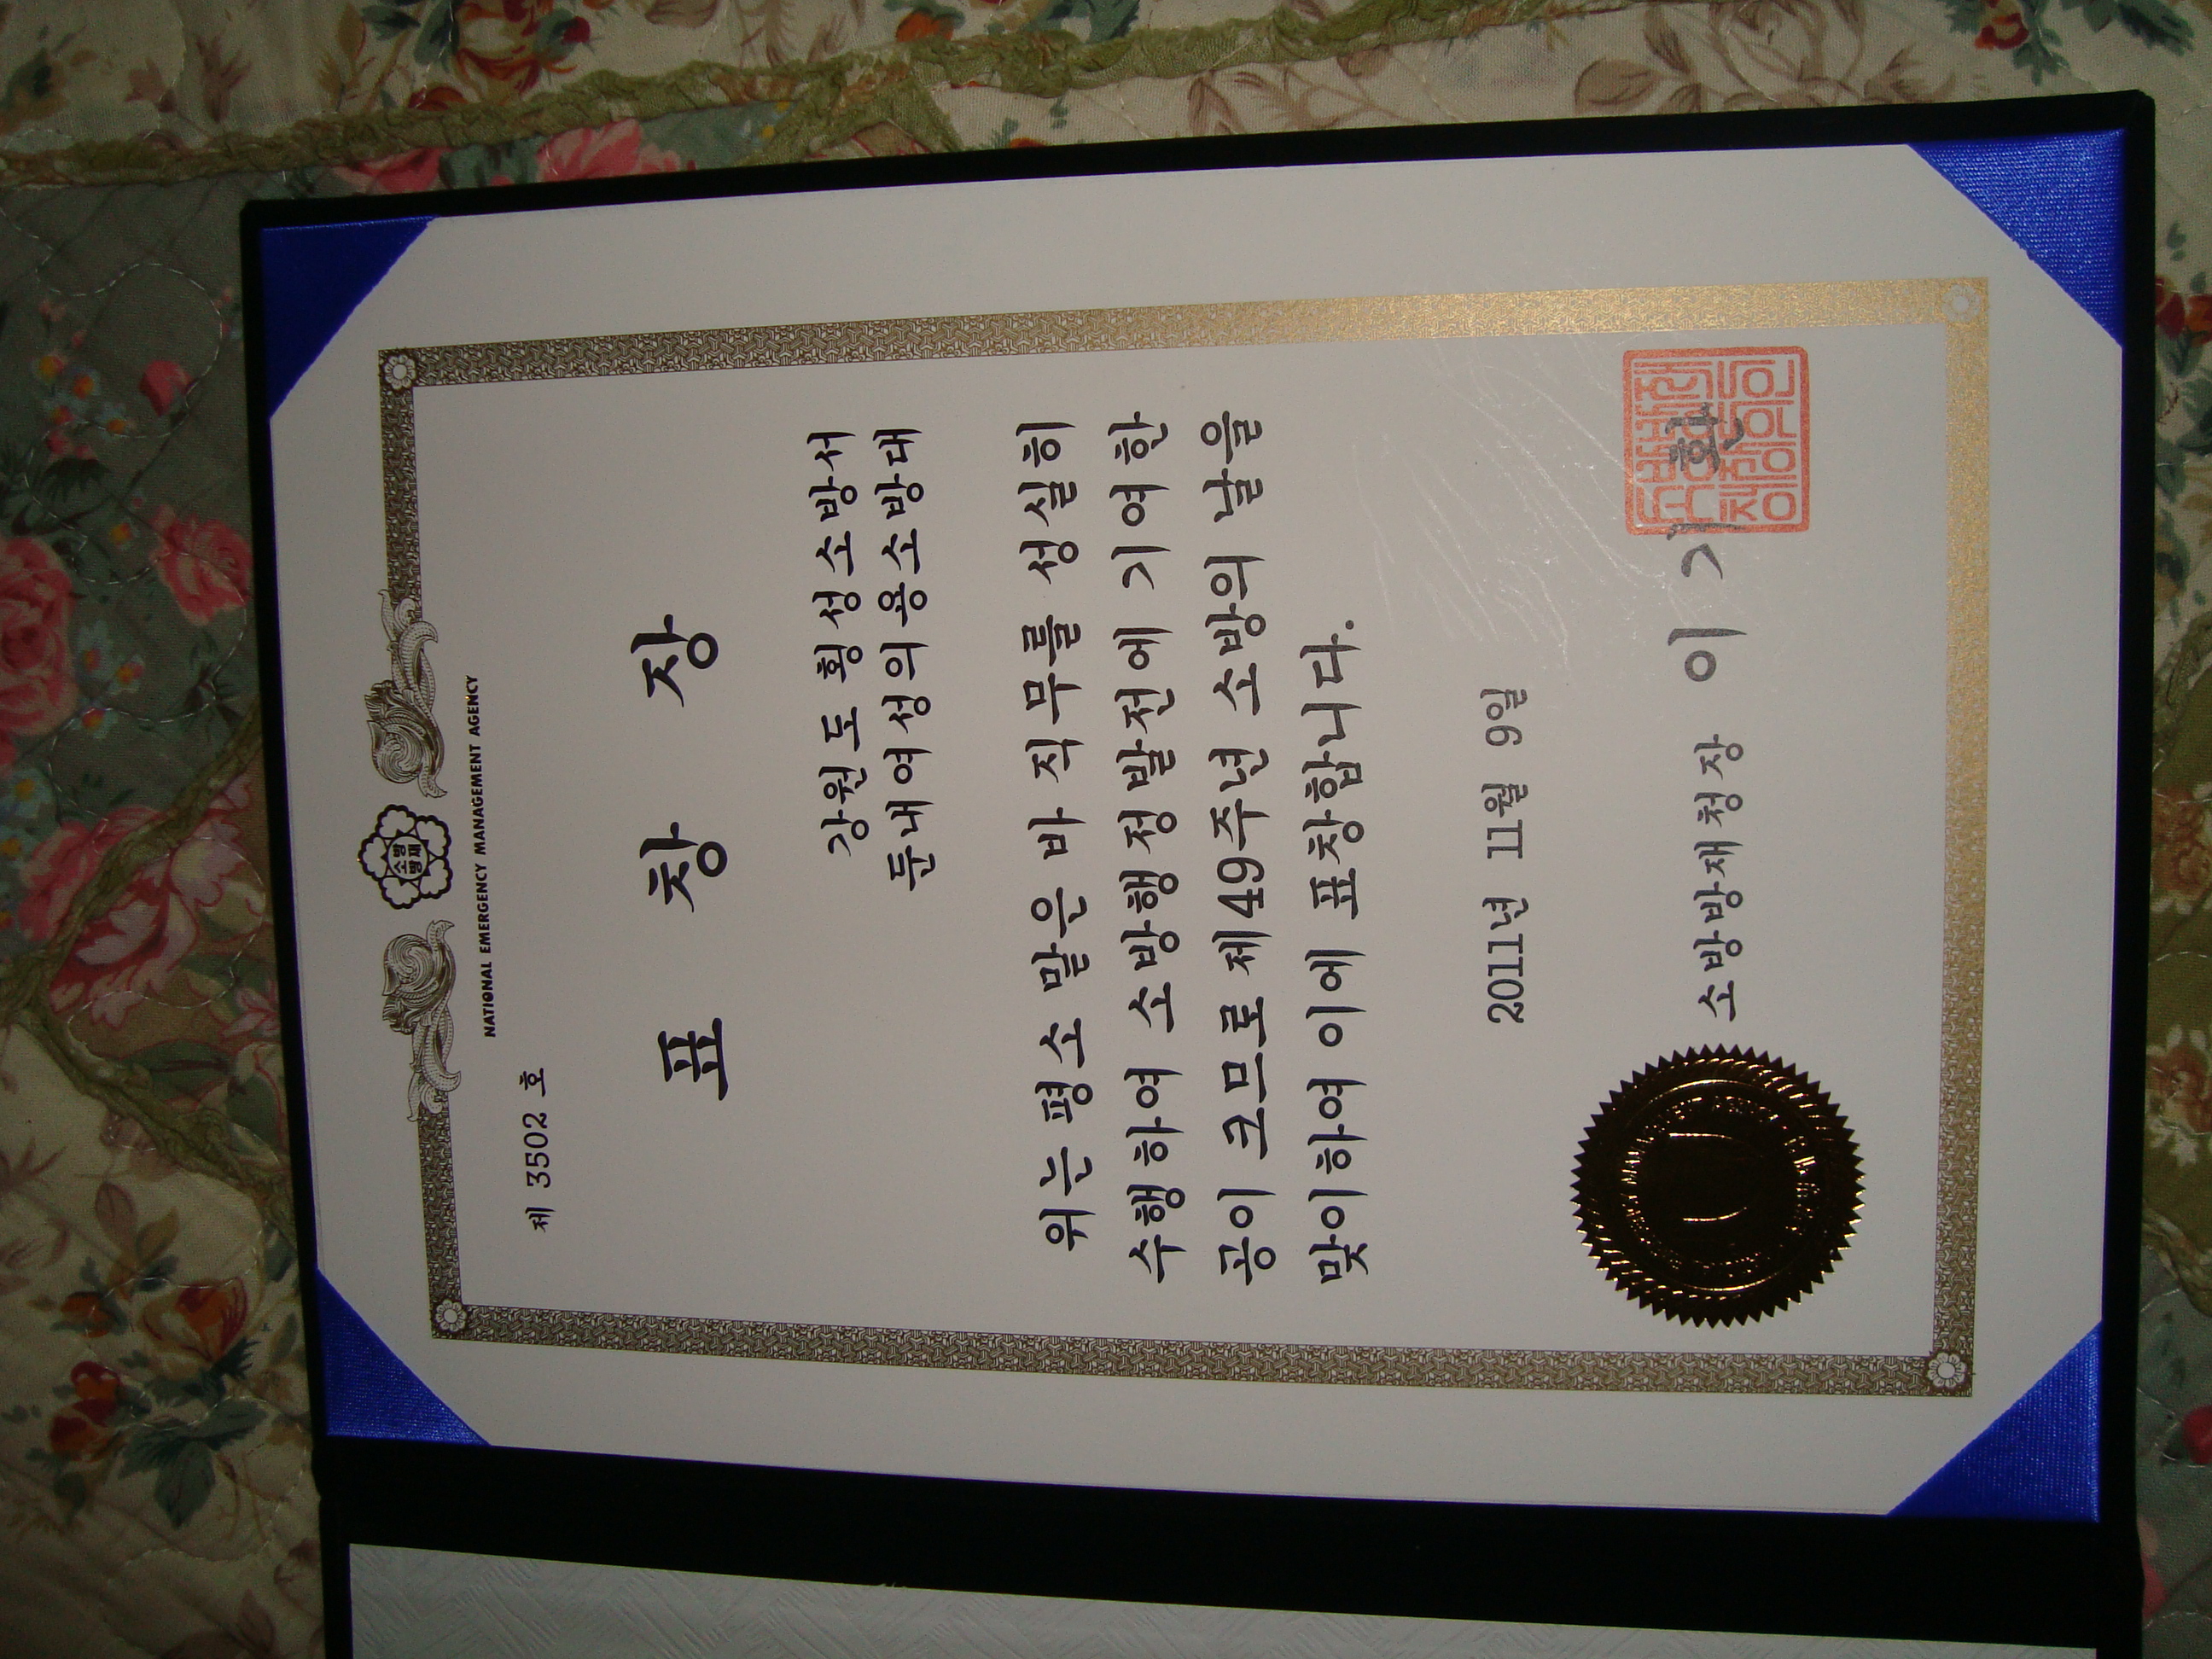 소방
방재
NATIONAL EMERGENCY MANAGEMENT AGENCY
제 3502 호
표 창 장
강원도 횡성소방서
둔내여성의용소방대
위는 평소 맡은 바 직무를 성실히
수행하여 소방행정발전에 기여한
공이 크므로 제49주년 소방의 날을
맞이하여 이에 표창합니다.
2011년 11월 9일
소방방재청장 이 기 환
소방방재
청장의인